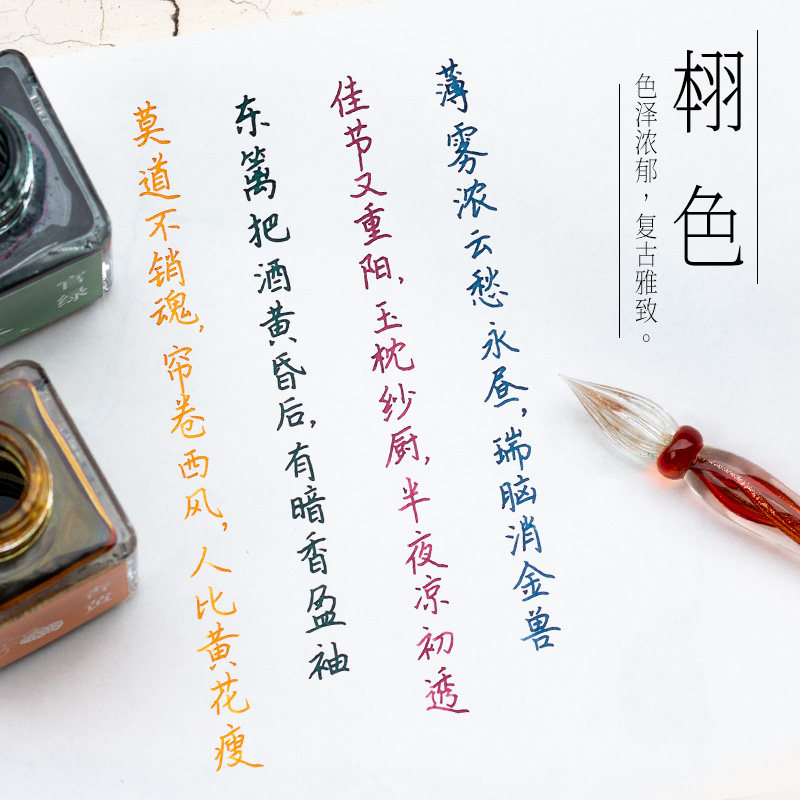 栩色
色泽浓郁，复古雅致。
薄雾浓云愁永昼，瑞脑消金兽
佳节又重阳，玉枕纱厨，半夜凉初透
东篱把酒黄昏后，有暗香盈袖
莫道不销魂，帘卷西风，人比黄花瘦